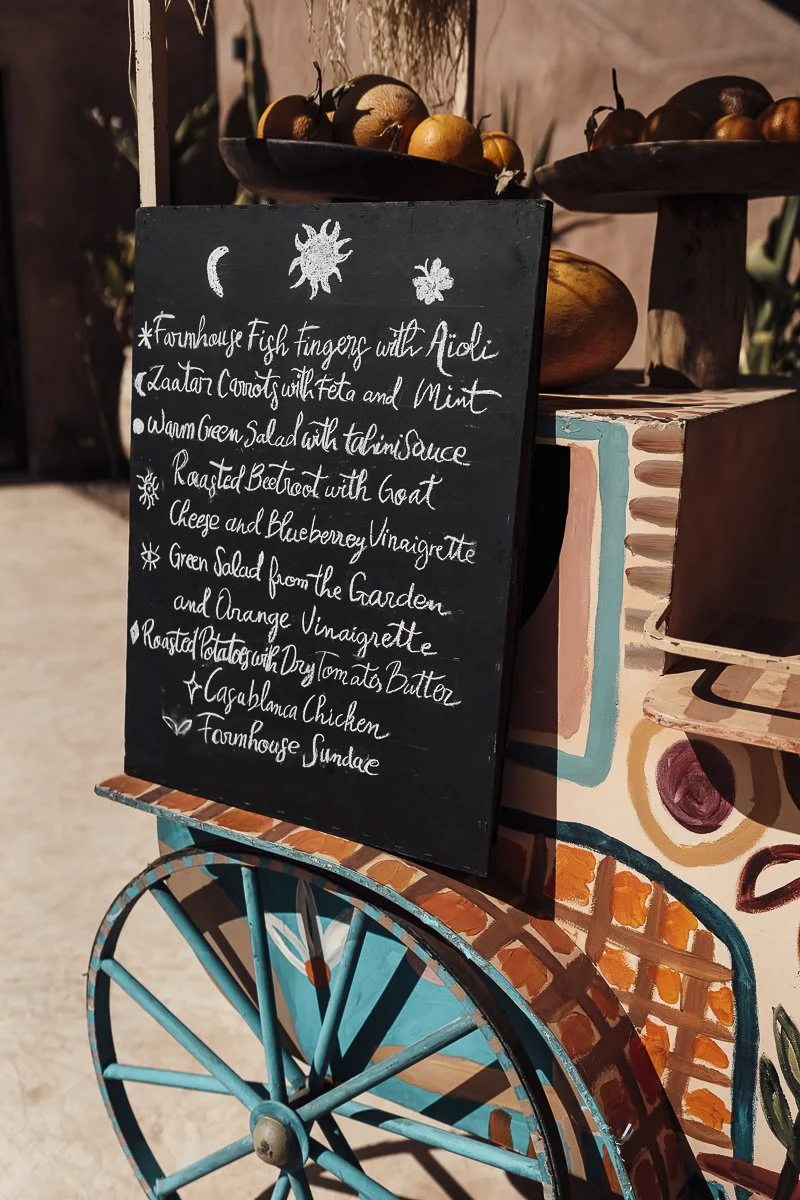 Farmhouse Fish Fingers with Aïoli
Zaatar Carrots with Feta and Mint
Warm Green Salad with tahini Sauce
Roasted Beetroot with Goat
Cheese and Blueberrey Vinaigrette
Green Salad from the Garden
and Orange Vinaigrette
Roasted Potatoes with Dry Tomatos Butter
Casablanca Chicken
Farmhouse Sundae